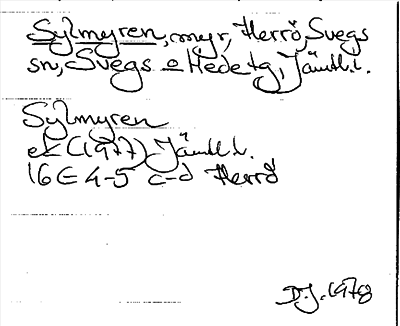 Sylmyren, myr, Herrö, Svegs
sn, Svegs o Hede tg, Jämtl.l.
Sylmyren
ek (1977) Jämtl.l.
16E 4-5 c-d Herrö
D.J. 1978